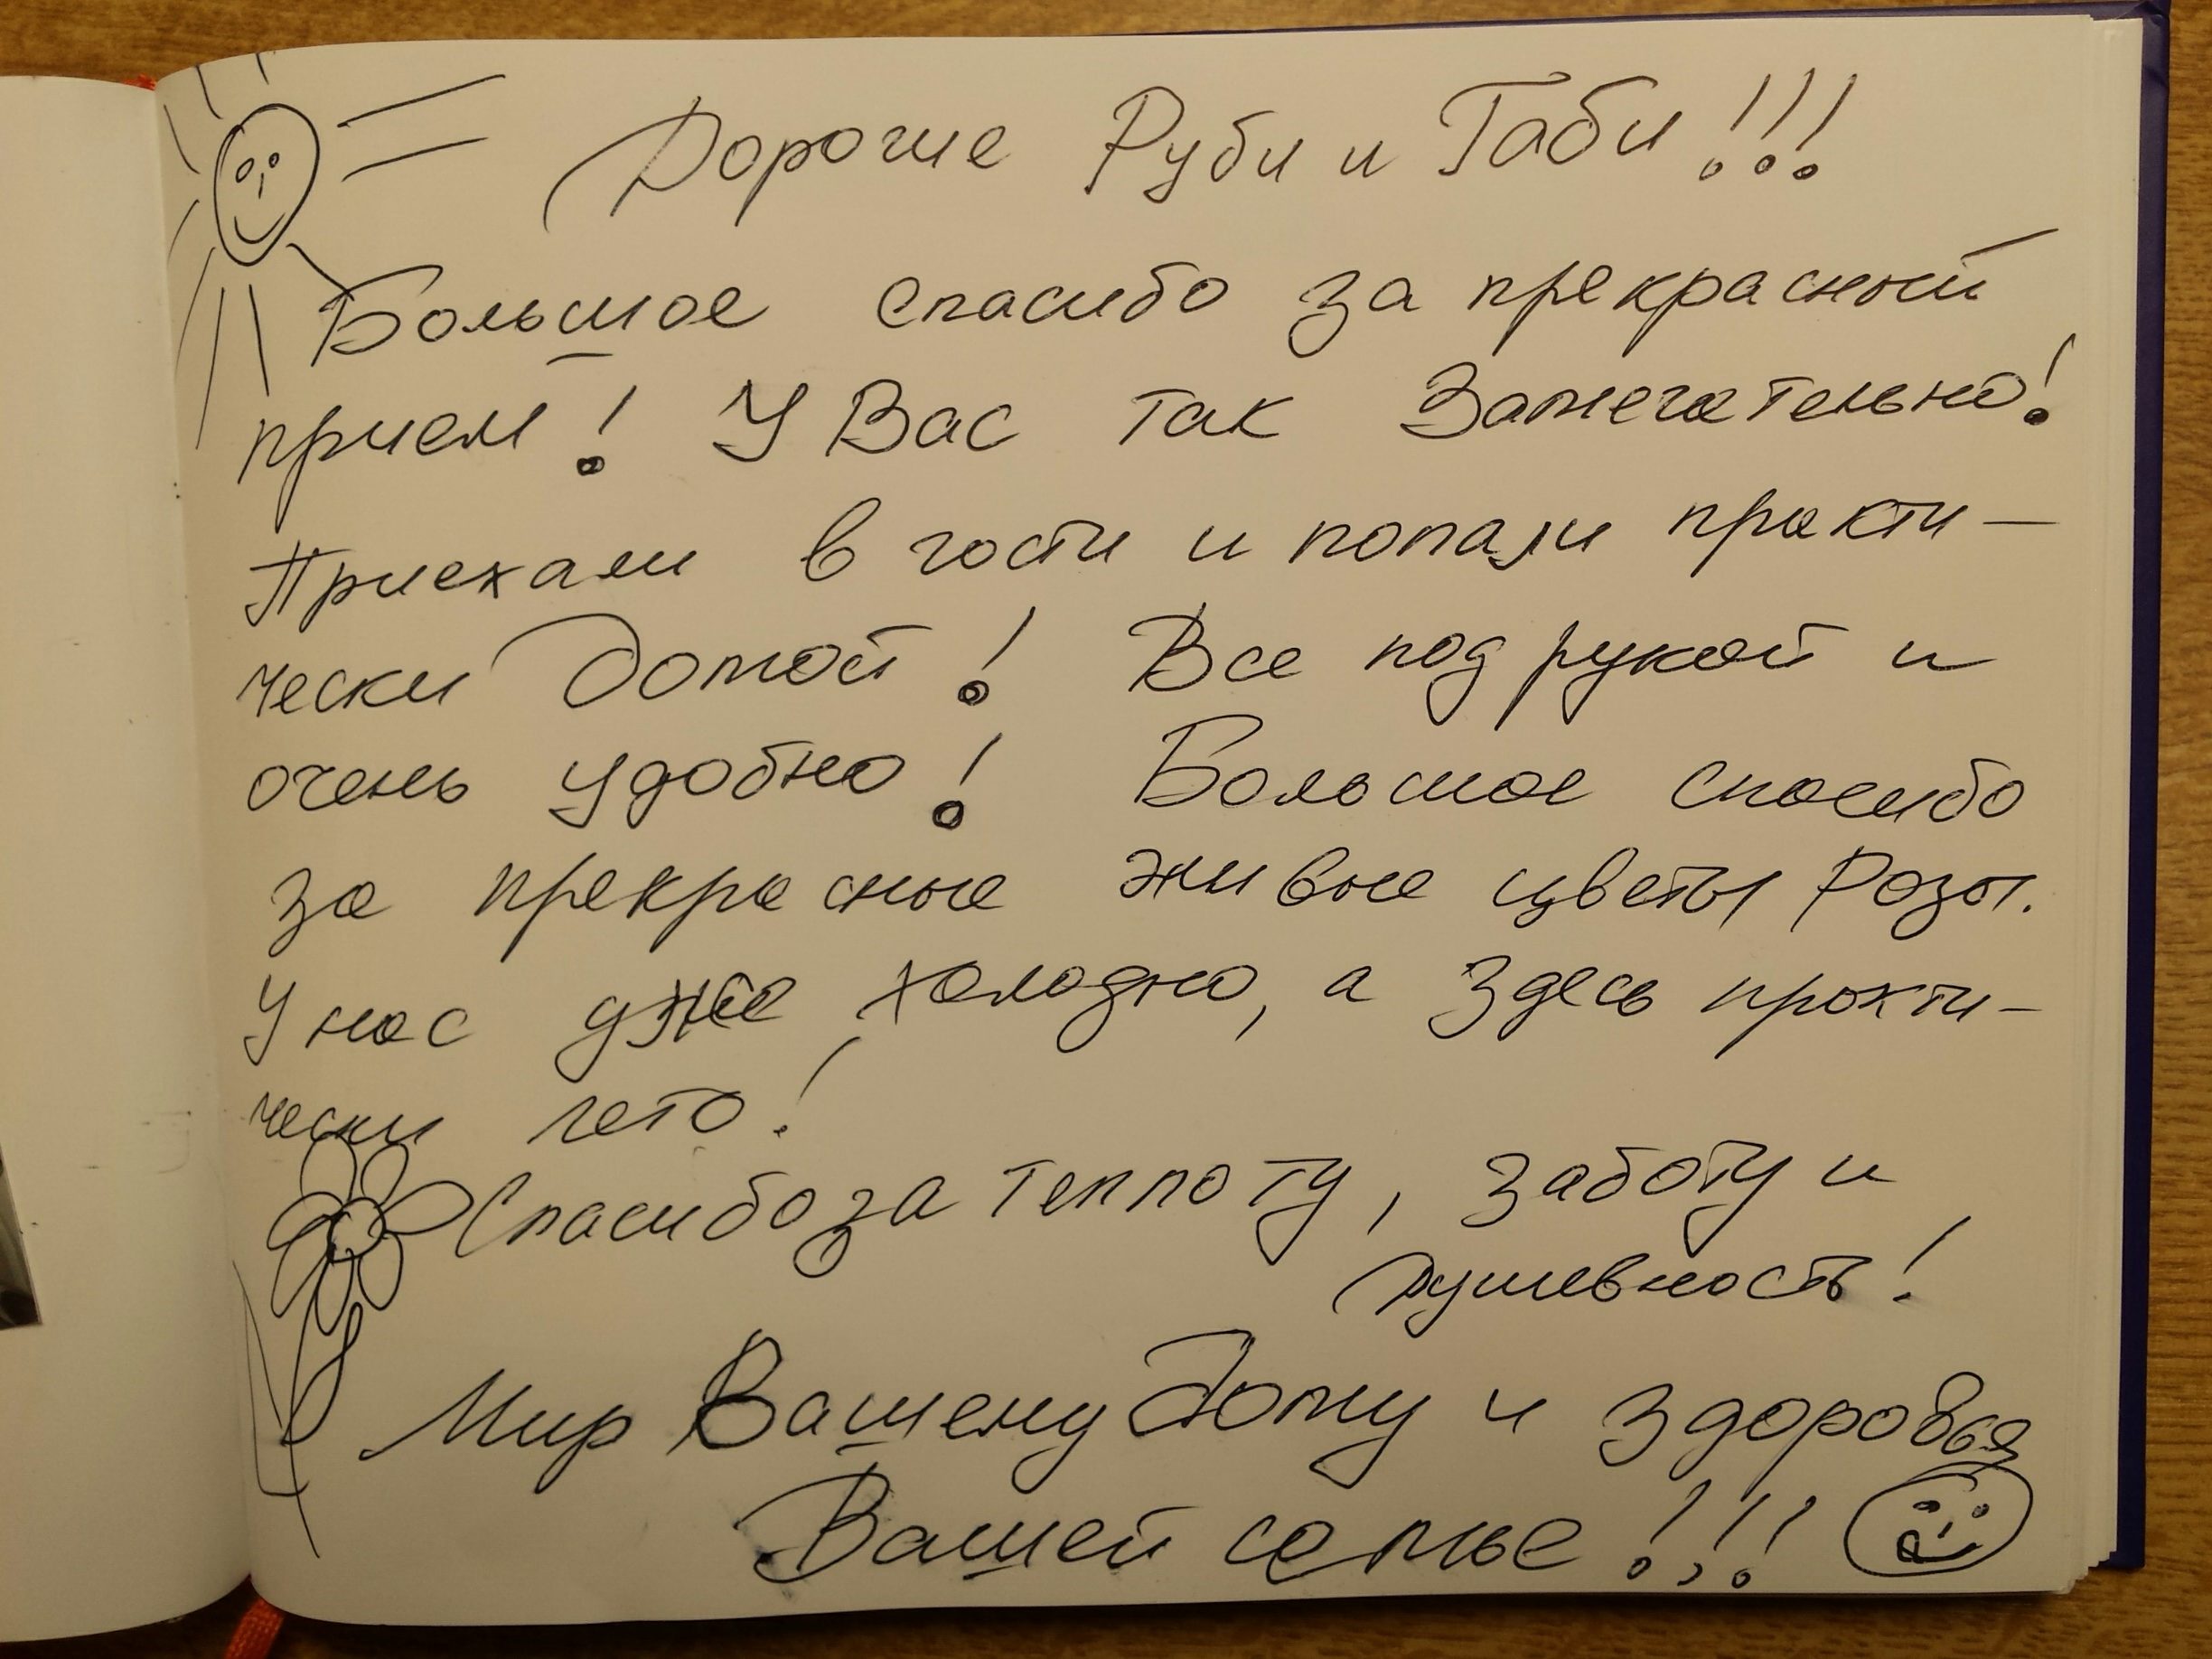 Дорогие Руби и Габи!!!
Большое спасибо за прекрасный
прием! У Вас так Замечательно!
Приехали в гости и попали практи-
чески домой! Все под рукой и
очень удобно! Большое спасибо
за прекрасные живые цветы Розы.
У нас уже холодно, а здесь практи-
чески лето!
Спасибо за теплоту, заботу и
душевность!
Мир Вашему Дому и здоровья
Вашей семье!!!